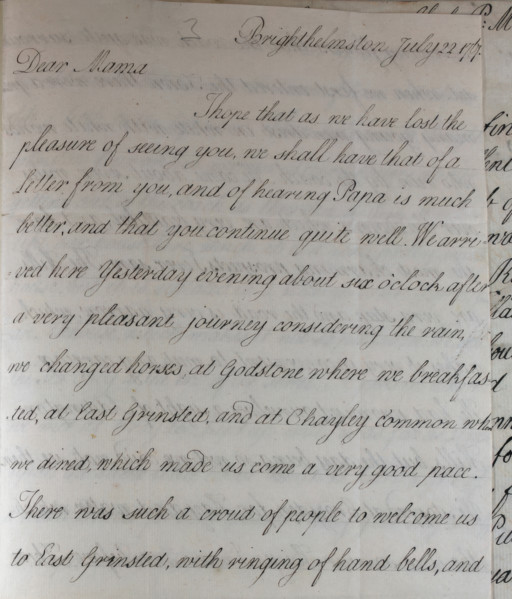 3
Brighthelmston July 22 177
Dear Mama
I hope that as we have lost the
pleasure of seeing you, we shall have that of a
Letter from you, and of hearing Papa is much
better, and that you continue quite well. We arri
ved here Yesterday evening about six o'clock after
a very pleasant journey considering the rain,
we changed horses, at Godstone where we breakfas
ted, at East Grinsted, and at Chayley common wh
we dined, which made us come a very good pace.
There was such a croud of people to welcome us
to East Grinsted, with ringing of hand bells, and